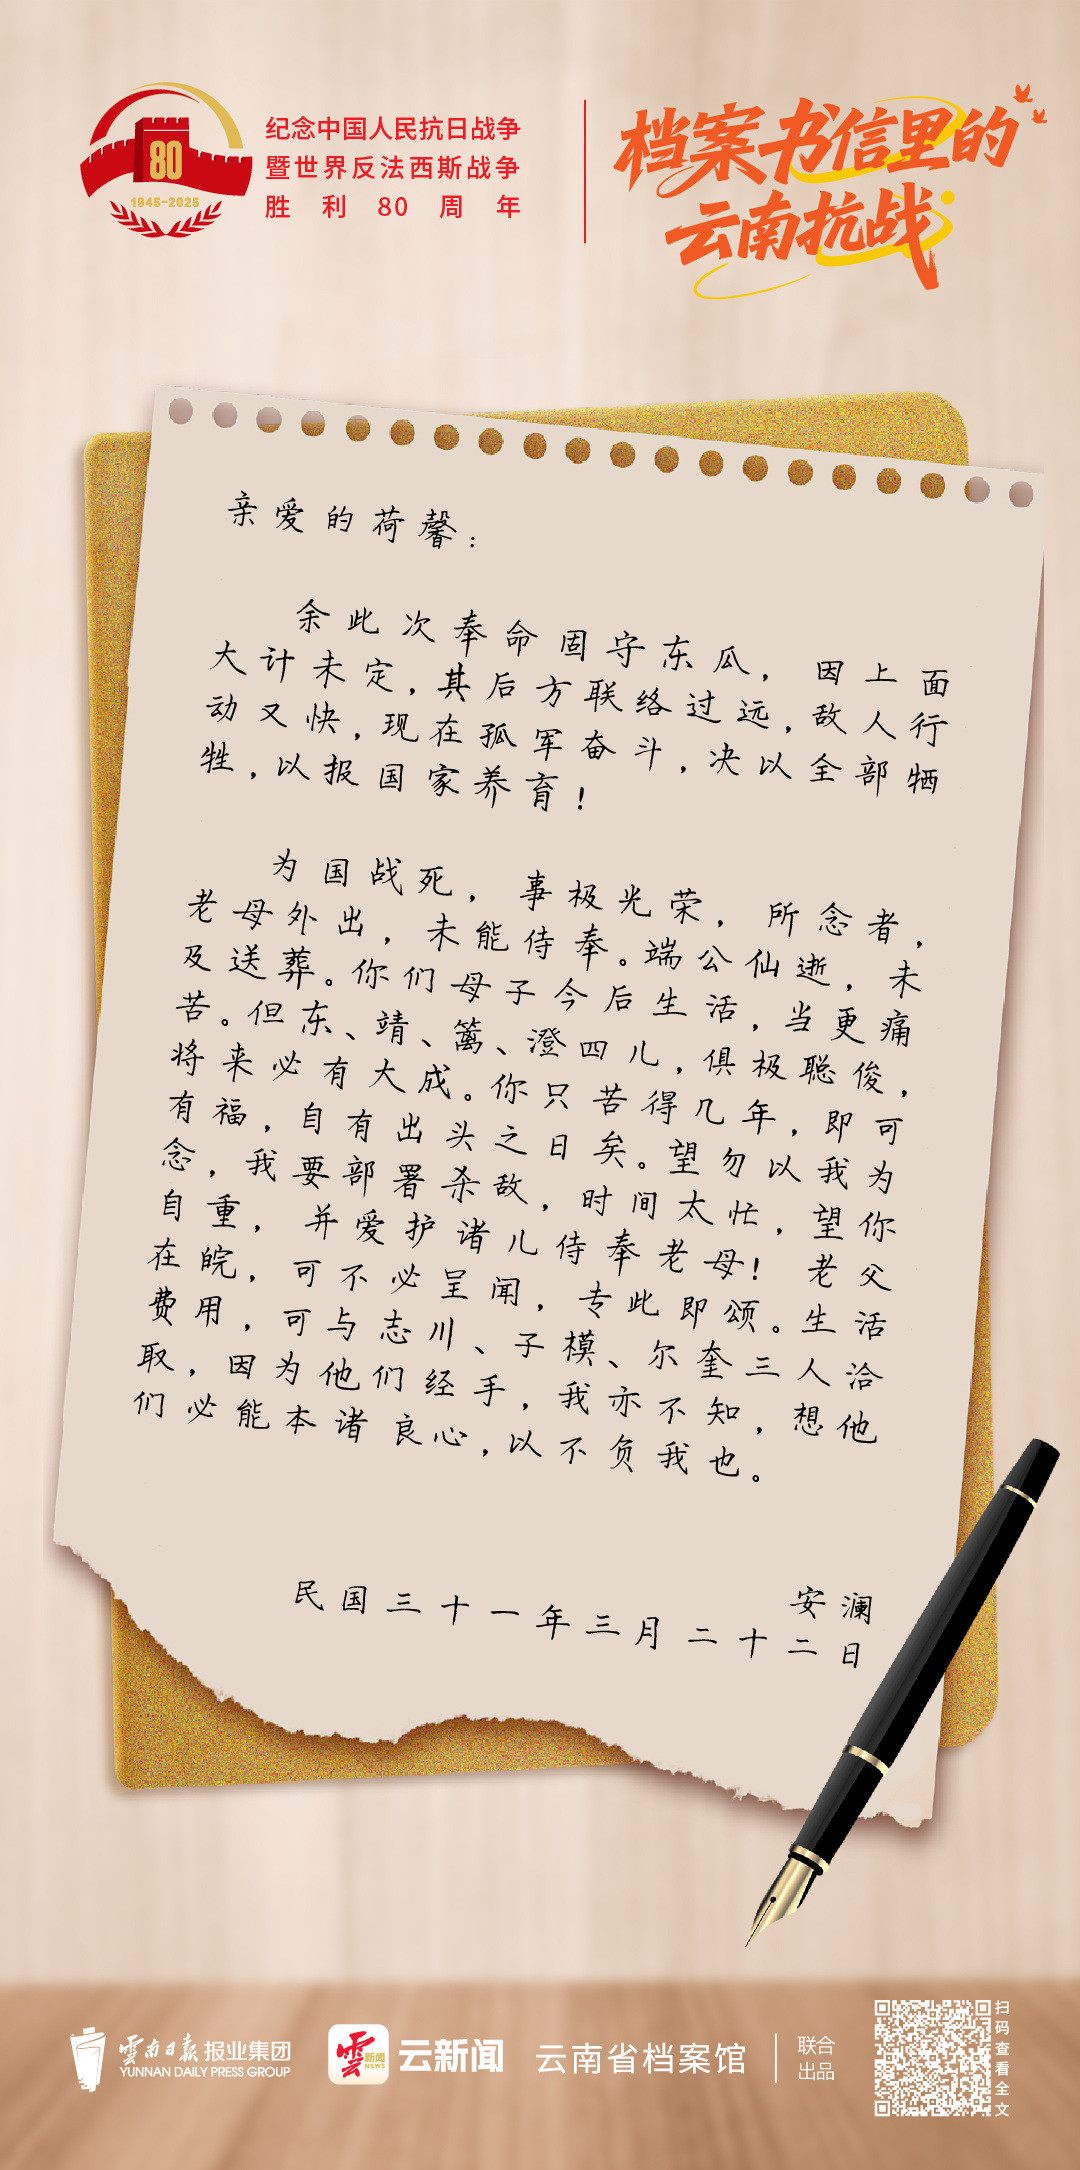 纪念中国人民抗日战争
暨世界反法西斯战争
胜利80周年
80
1945-2025
档案书信里的
云南抗战
亲爱的荷馨：
余此次奉命固守东瓜，因上面
大计未定，其后方联络过远，敌人行
动又快，现在孤军奋斗，决以全部牺
牲，以报国家养育！
为国战死，事极光荣，所念者，
老母外出，未能侍奉。端公仙逝，未
及送葬。你们母子今后生活，当更痛
苦。但东、靖、篱、澄四儿，俱极聪俊，
将来必有大成。你只苦得几年，即可
有福，自有出头之日矣。望勿以我为
念，我要部署杀敌，时间太忙，望你
自重，并爱护诸儿侍奉老母！老父
在皖，可不必呈闻，专此即颂。生活
费用，可与志川、子模、尔奎三人洽
取，因为他们经手，我亦不知，想他
们必能本诸良心，以不负我也。
安澜
民国三十一年三月二十二日
雲南日報报业集团
YUNNAN DAILY PRESS GROUP
雲新闻
NEWS
云新闻
云南省档案馆
联合
出品
扫码查看全文